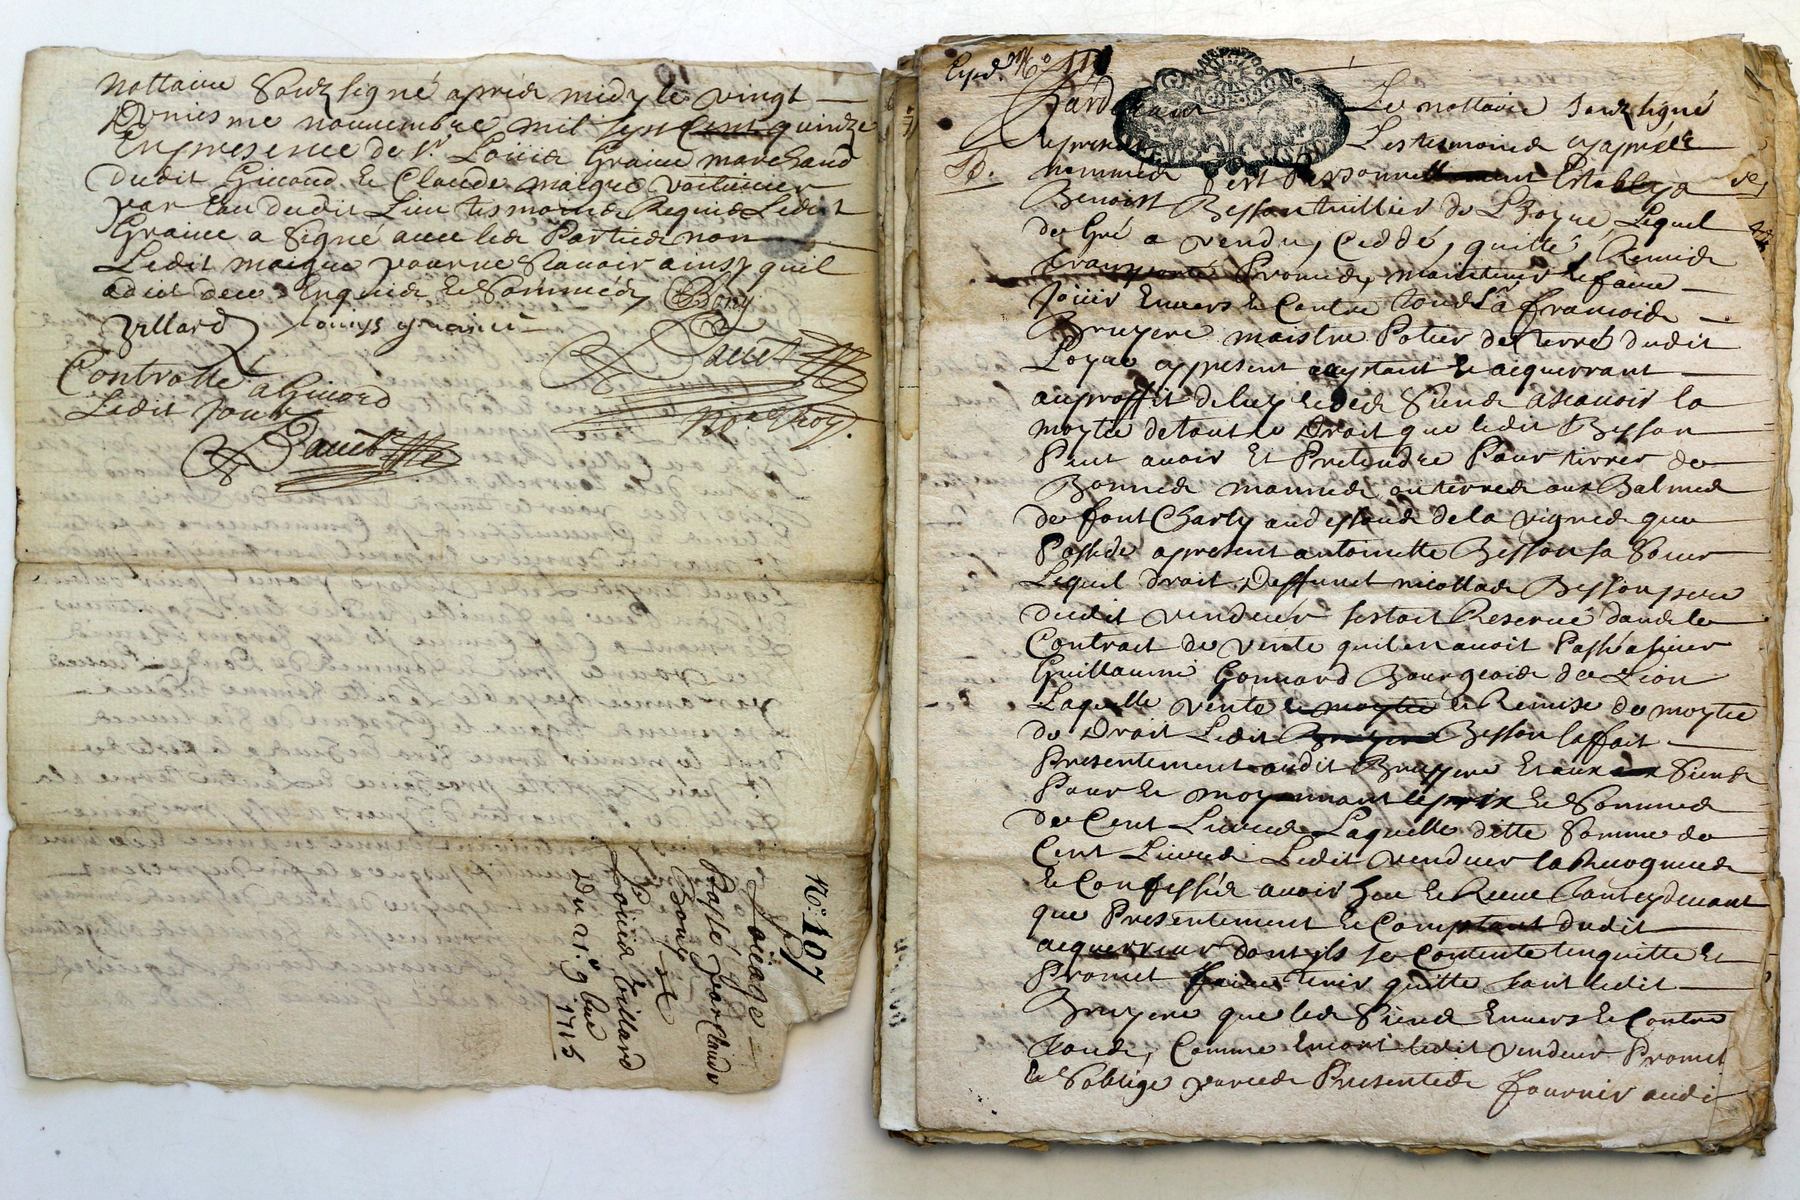 nottaire Soubz signé apprés midy le vingt
Uniesme nouuembre mil sept Cent quindze
En presence de Sr Loüis Graine marchand
dudit Giuord & Claude maigre Voiturier
par Eau dudit Lieu tesmoins Requis Ledit
Graine a Signé auec les Parties non
Ledit maigre pour ne Scauoir ainsy quil
a dit de ce Enquis & Sommés Bony
Villard Louys graine
Controllé a Giuord
Ledit Jour
No. 107
Loüage
Passé par Claude
Bony et
Loüis Villard
Du 21e 9bre 1715
Le nottaire soubz signé
Les tesmoins cy apprés
nommés Est Personnellement Establys
Benoist Besson tuillier de Loyre, Lequel
de Gré a vendu, Ceddé, quitté, Remis
transporté Promis, maintenir & faire
Joüir Enuers & Contre tous Sr à francois
Bruyere maistre Potier de terre dudit
Loyre cy present acceptant & acquerrant
au proffit de luy & des Siens a scauoir la
moytié de tout le Droit que ledit Besson
Peut auoir Et Pretendre Pour tirrer de
Bonnes marnes ou terres aux Balmes
de font Charly au dessous de la vigne que
Possede a present antoinette Besson sa Soeur
Lequel droit Deffunct nicollas Besson pere
dudit vendeur sestoit Reserué dans le
Contract de vente quil en auoit Passé a sieur
Guillaume Gonnard Bourgeois de Lion
Laquelle vente & Remise de moytié
de Droit Ledit Besson la ffait
Presentement audit Bruyere Et aux Siens
Pour & moyennant le prix & Somme
de Cent Liures Laquelle ditte Somme de
Cent Liures Ledit vendeur la Recognue
& Confessé auoir heu & Receu tant cy deuant
que Presentement & Comptant dudit
acquerreur dont il se Contente Enquitte Et
Promet faire tenir quitte tant ledit
Bruyere que les Siens Enuers & Contre
tous, Comme Encore ledit vendeur Promet
& Soblige par ces Presentes fournir audit